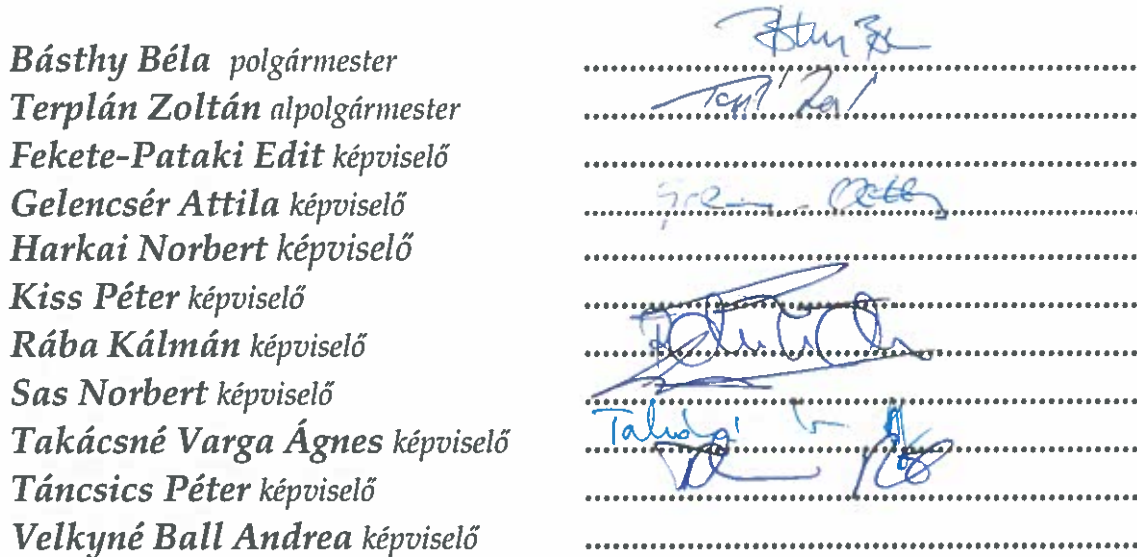 Básthy Béla polgármester
Terplán Zoltán alpolgármester
Fekete-Pataki Edit képviselő
Gelencsér Attila képviselő
Harkai Norbert képviselő
Kiss Péter képviselő
Rába Kálmán képviselő
Sas Norbert képviselő
Takácsné Varga Ágnes képviselő
Táncsics Péter képviselő
Velkyné Ball Andrea képviselő